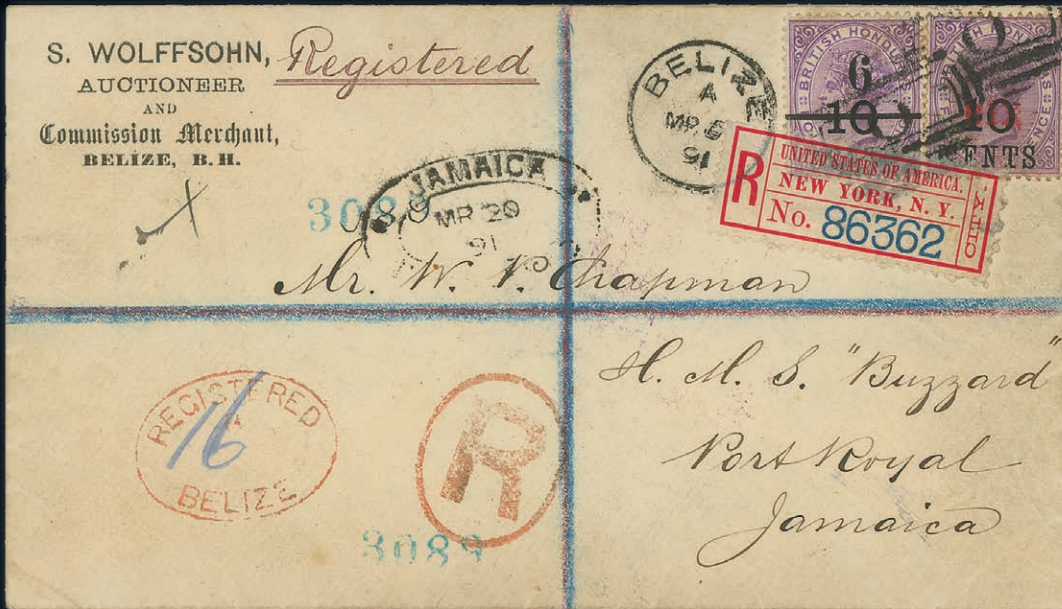 S. WOLFFSOHN,
AUCTIONEER
AND
Commission Merchant,
BELIZE, B. H.
Registered
BELIZE
A
MR 5
91
BRITISH HONDU
6
10
BRITISH HON
10
ENTS
R
UNITED STATES OF AMERICA.
NEW YORK, N. Y.
No. 86362
3089
JAMAICA
MR 20
91
Mr. W. V. Chapman
H. M. S. "Buzzard"
Port Royal
Jamaica
REGISTERED
A
16
BELIZE
R
3089